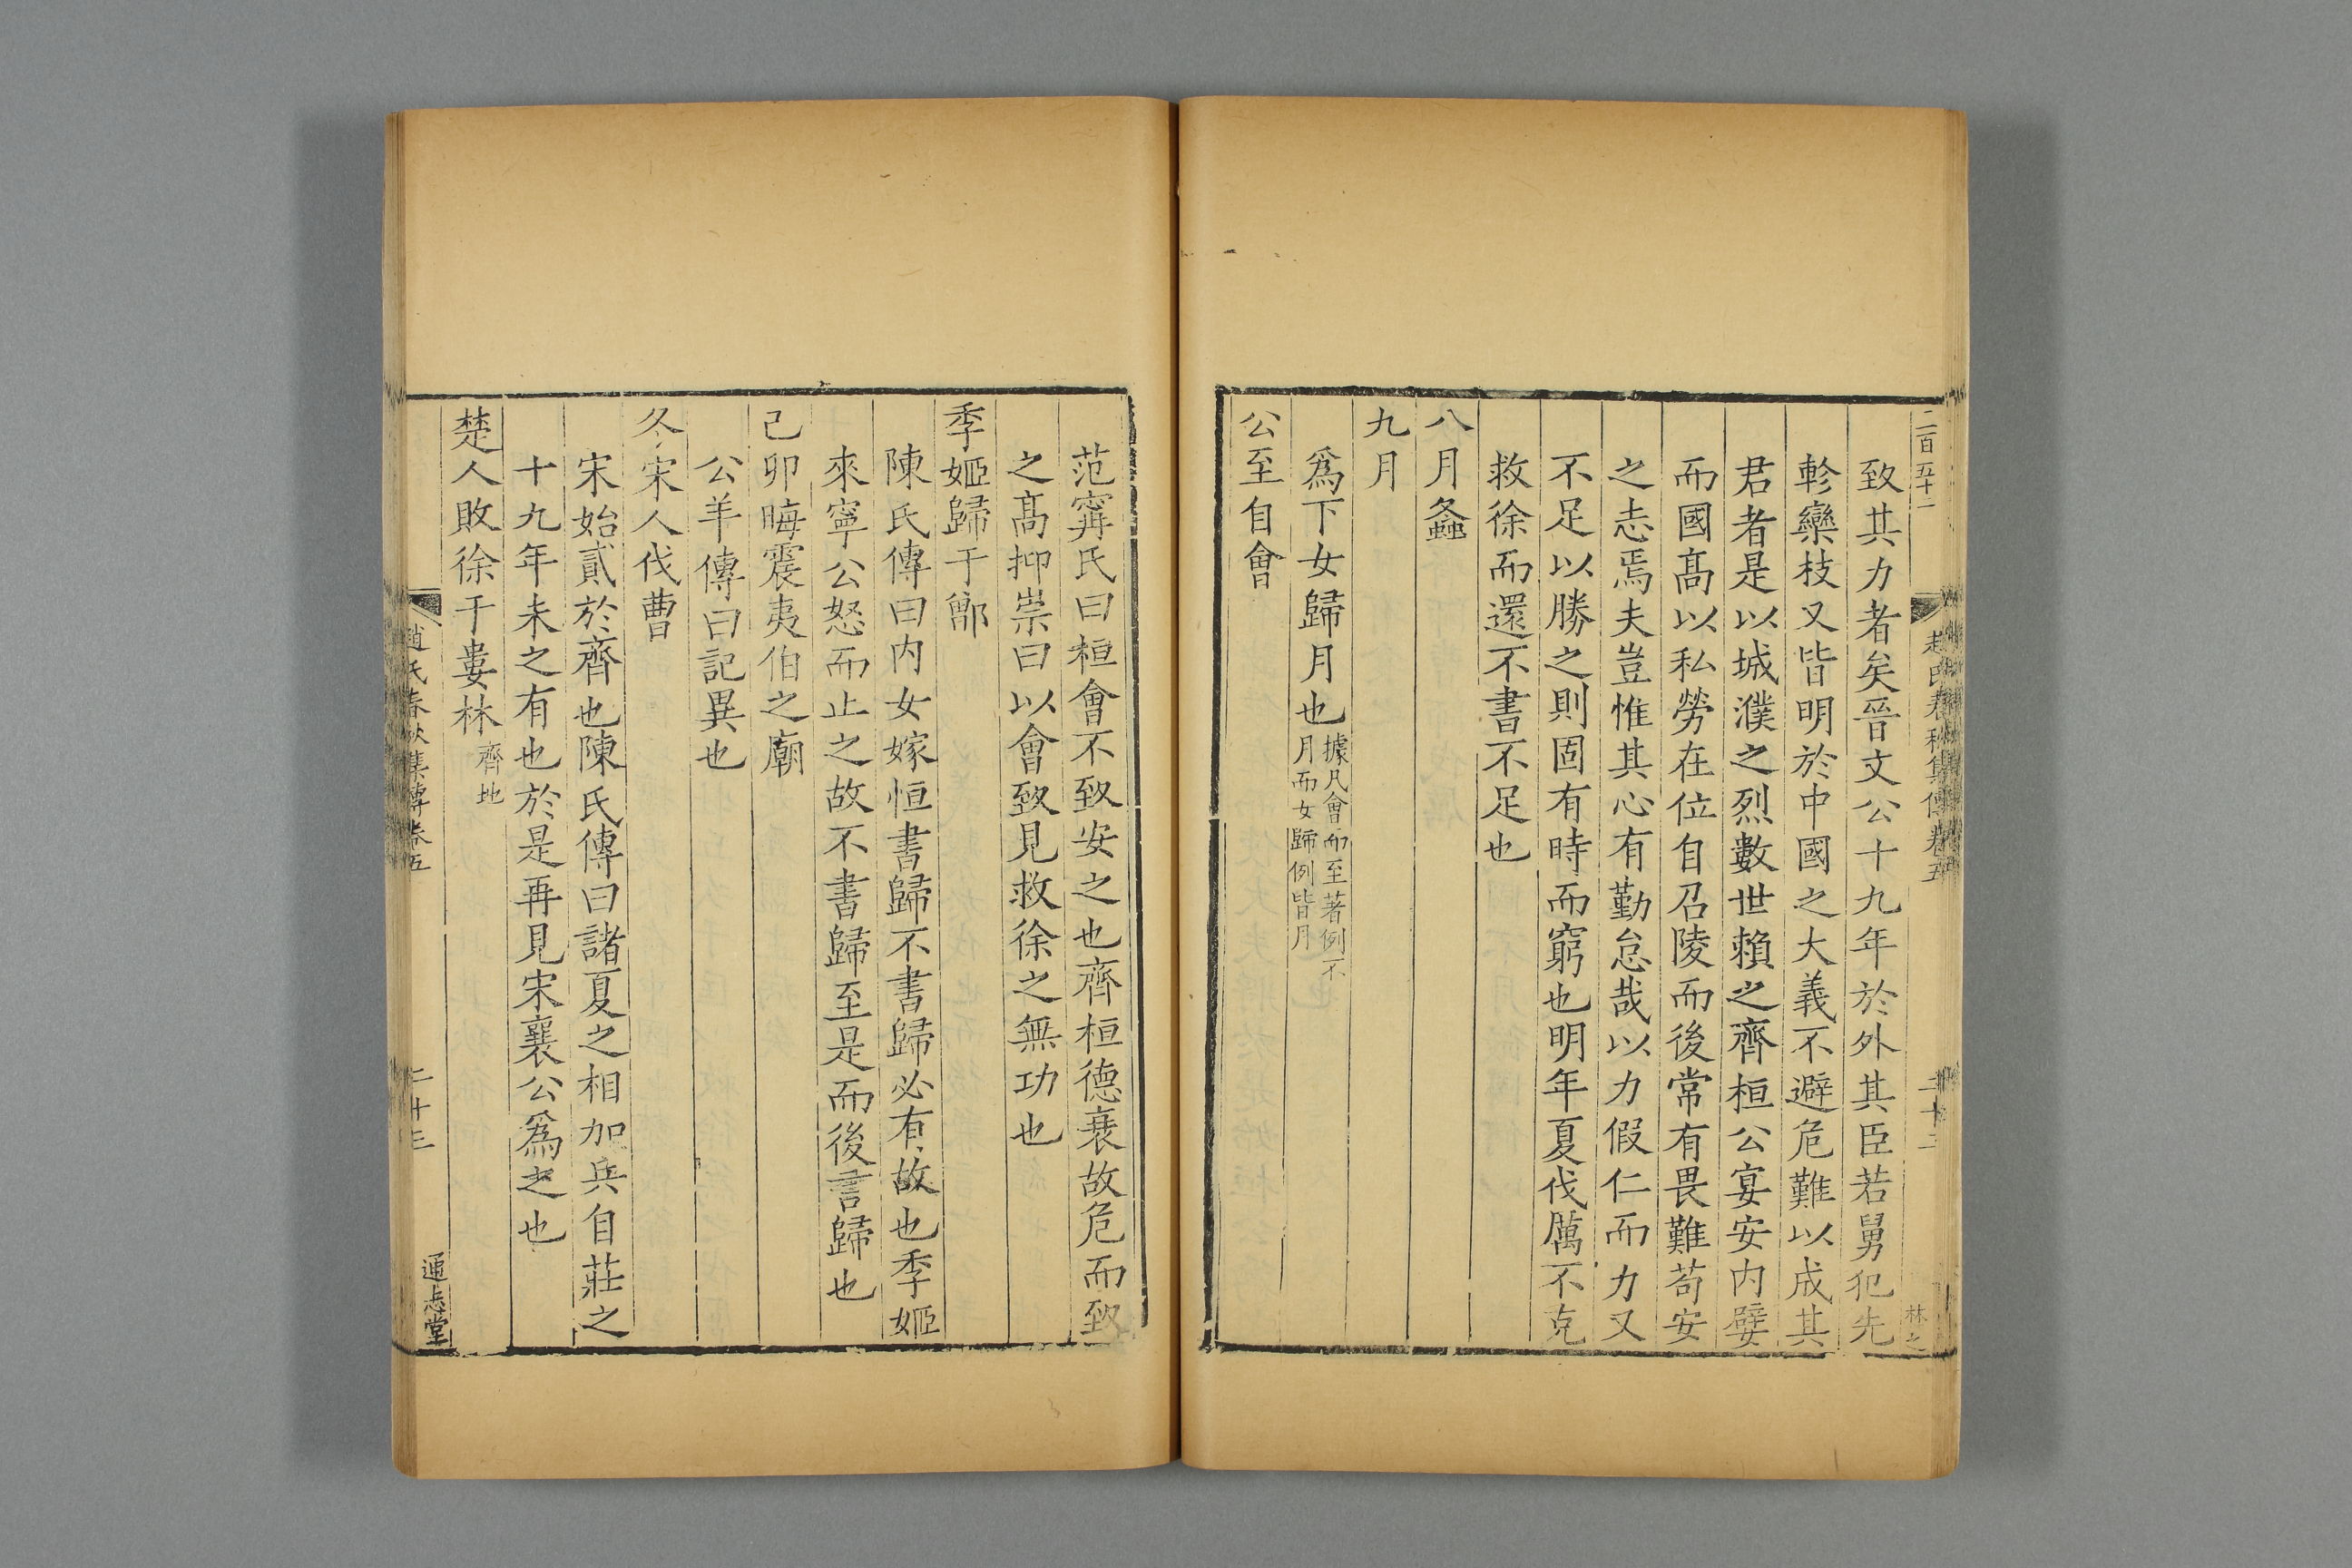 二百五十二
趙氏春秋集傳卷五
二十二
林之
致其力者矣晉文公十九年於外其臣若舅犯先
軫欒枝又皆明於中國之大義不避危難以成其
君者是以城濮之烈數世賴之齊桓公宴安内嬖
而國髙以私勞在位自召陵而後常有畏難苟安
之志焉夫豈惟其心有勤怠哉以力假仁而力又
不足以勝之則固有時而窮也明年夏伐厲不克
救徐而還不書不足也
八月螽
九月
爲下女歸月也據凡會而至著例不
月而女歸例皆月
公至自會
范甯氏曰桓會不致安之也齊桓德衰故危而致
之髙抑崇曰以會致見救徐之無功也
季姬歸于鄫
陳氏傳曰内女嫁恒書歸不書歸必有故也季姬
來寧公怒而止之故不書歸至是而後言歸也
己卯晦震夷伯之廟
公羊傳曰記異也
冬宋人伐曹
宋始貳於齊也陳氏傳曰諸夏之相加兵自莊之
十九年未之有也於是再見宋襄公爲之也
楚人敗徐于婁林齊地
趙氏春秋集傳卷五
二十三
通志堂